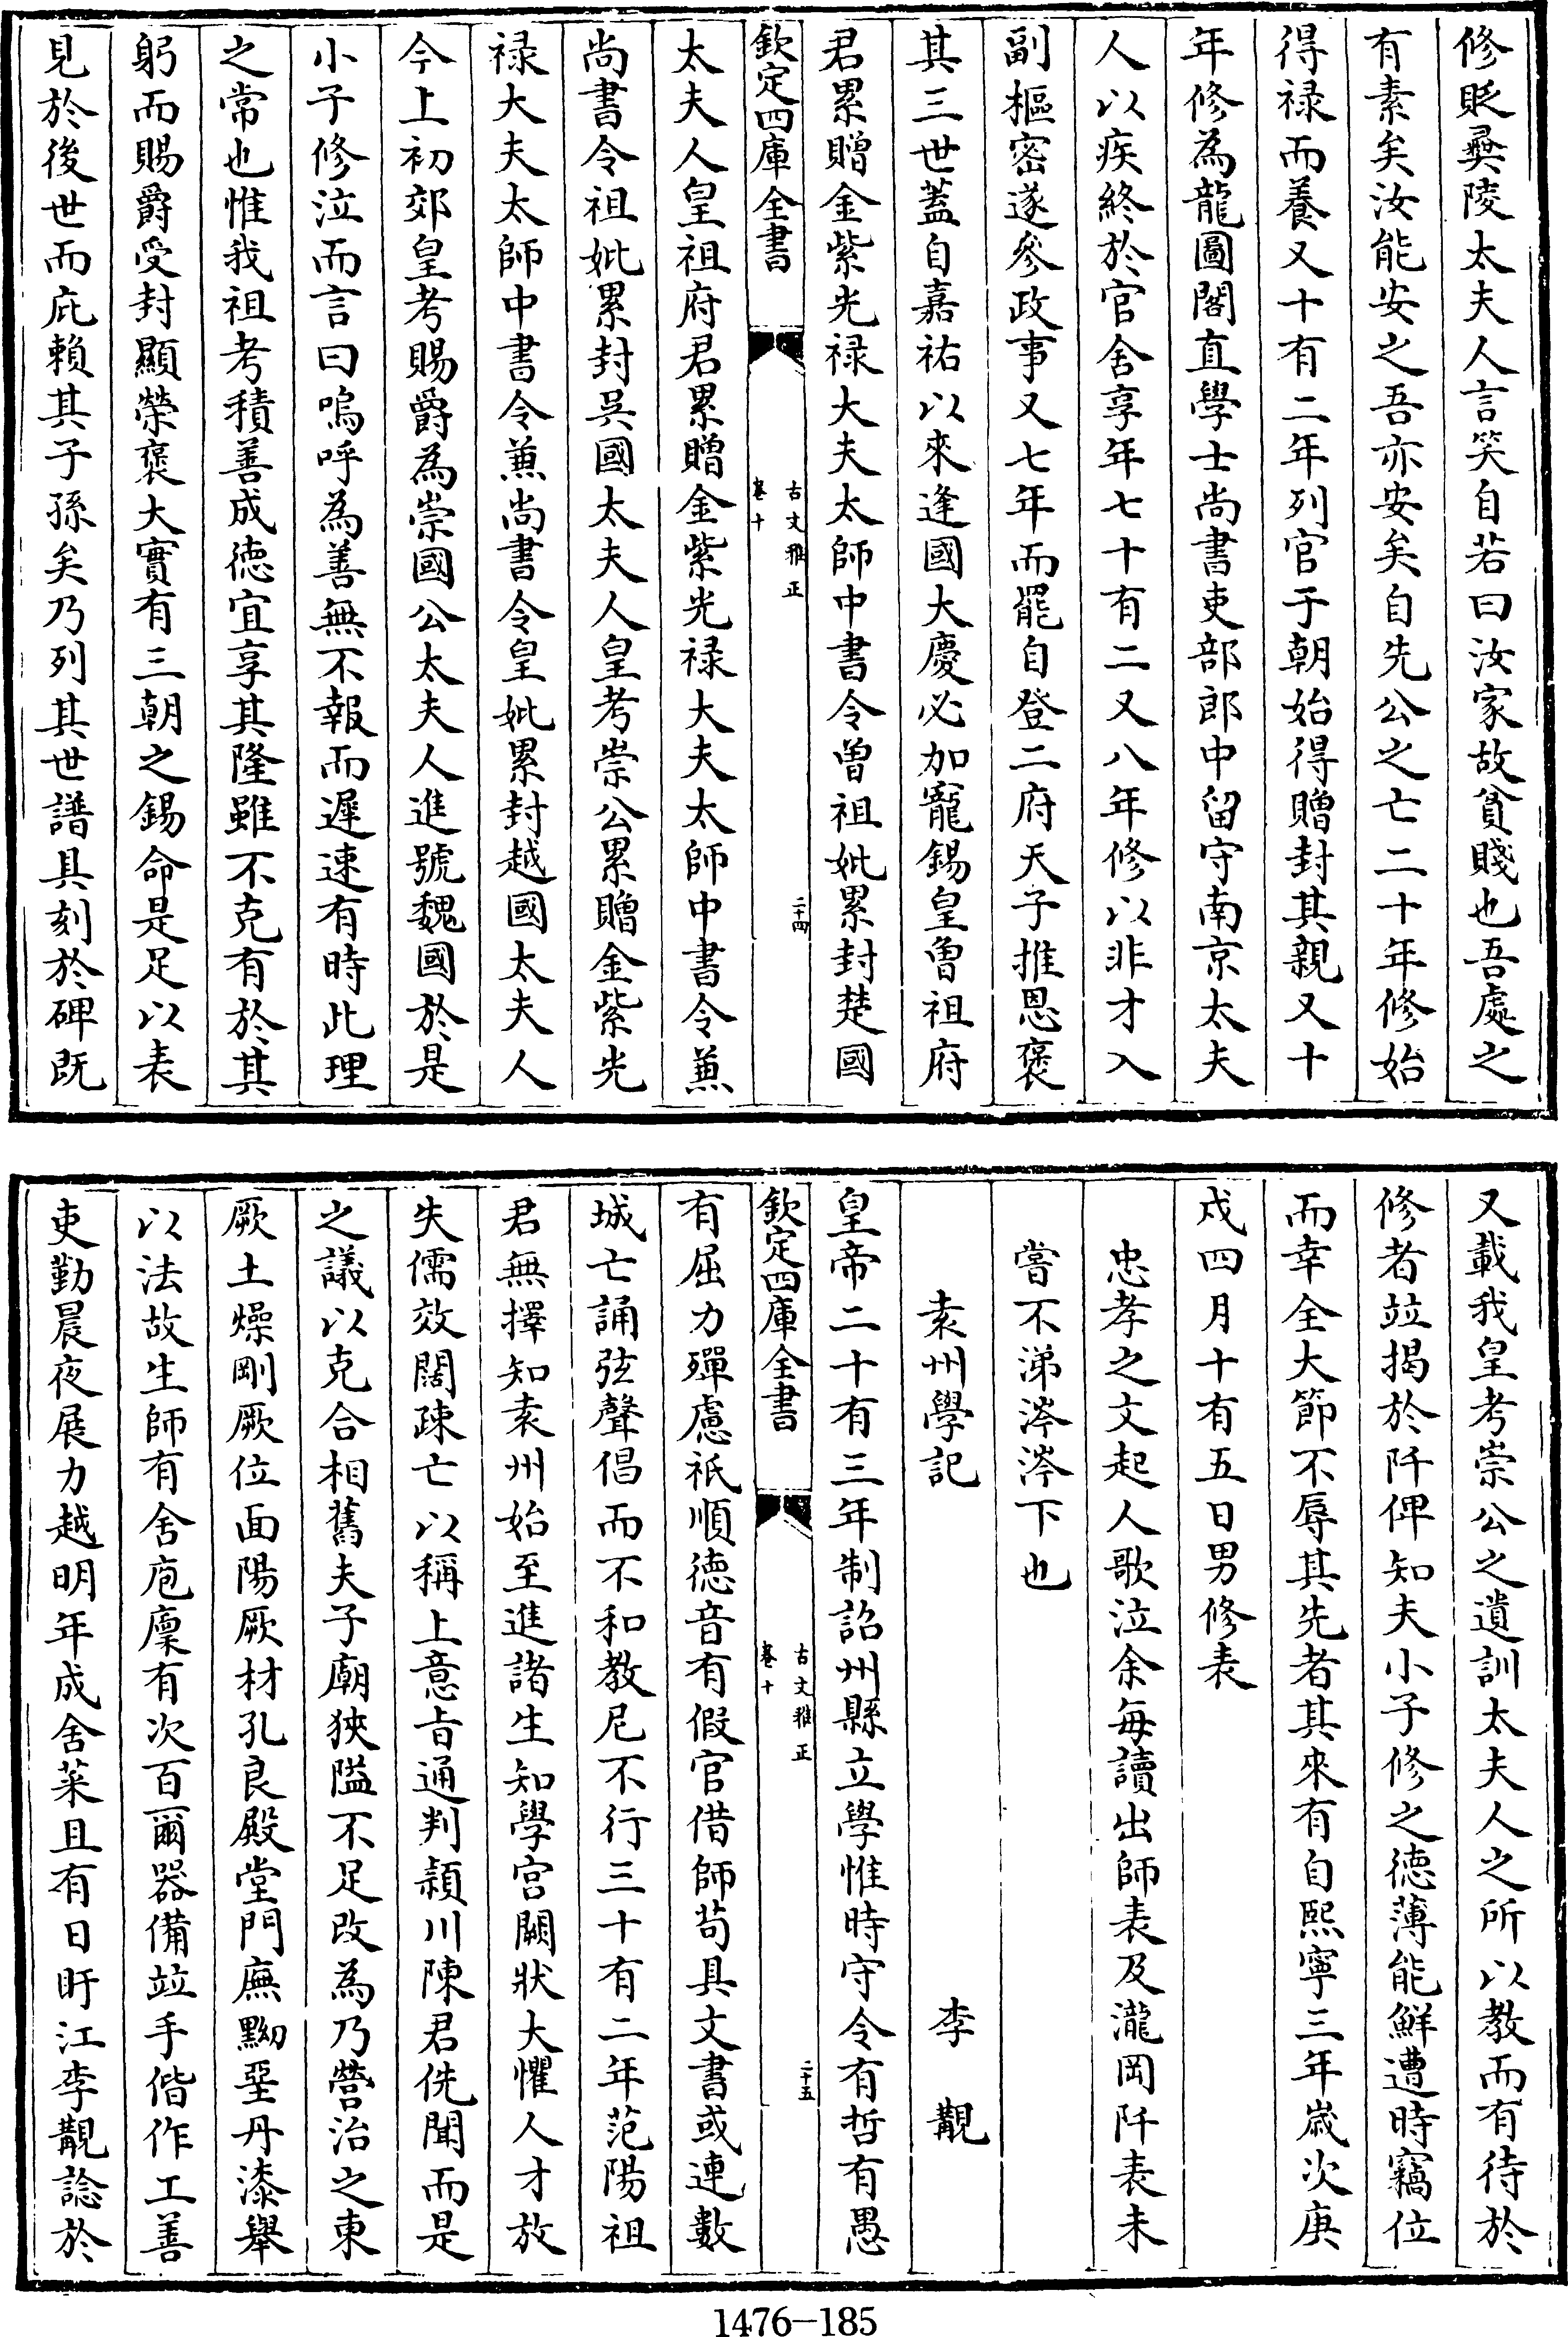 修貶夷陵太夫人言笑自若曰汝家故貧賤也吾處之
有素矣汝能安之吾亦安矣自先公之亡二十年修始
得禄而養又十有二年列官于朝始得贈封其親又十
年修為龍圖閣直學士尚書吏部郎中留守南京太夫
人以疾終於官舍享年七十有二又八年修以非才入
副樞密遂參政事又七年而罷自登二府天子推恩褒
其三世蓋自嘉祐以來逢國大慶必加寵錫皇曾祖府
君累贈金紫光禄大夫太師中書令曾祖妣累封楚國
欽定四庫全書
古文雅正
卷十
二十四
太夫人皇祖府君累贈金紫光禄大夫太師中書令兼
尚書令祖妣累封吳國太夫人皇考崇公累贈金紫光
禄大夫太師中書令兼尚書令皇妣累封越國太夫人
今上初郊皇考賜爵為崇國公太夫人進號魏國於是
小子修泣而言曰嗚呼為善無不報而遲速有時此理
之常也惟我祖考積善成德宜享其隆雖不克有於其
躬而賜爵受封顯榮褒大實有三朝之錫命是足以表
見於後世而庇賴其子孫矣乃列其世譜具刻於碑既
又載我皇考崇公之遺訓太夫人之所以教而有待於
修者竝揭於阡俾知夫小子修之德薄能鮮遭時竊位
而幸全大節不辱其先者其來有自熙寧三年歲次庚
戌四月十有五日男修表
忠孝之文起人歌泣余每讀出師表及瀧岡阡表未
嘗不涕涔涔下也
袁州學記
李覯
皇帝二十有三年制詔州縣立學惟時守令有哲有愚
欽定四庫全書
古文雅正
卷十
二十五
有屈力殫慮祇順德音有假官借師苟具文書或連數
城亡誦弦聲倡而不和教尼不行三十有二年范陽祖
君無擇知袁州始至進諸生知學宮闕狀大懼人才放
失儒效闊疎亡以稱上意㫖通判潁川陳君侁聞而是
之議以克合相舊夫子廟狹隘不足改為乃營治之東
厥土燥剛厥位面陽厥材孔良殿堂門廡黝堊丹漆舉
以法故生師有舍庖廩有次百爾器備竝手偕作工善
吏勤晨夜展力越明年成舍菜且有日盱江李覯諗於
1476-185